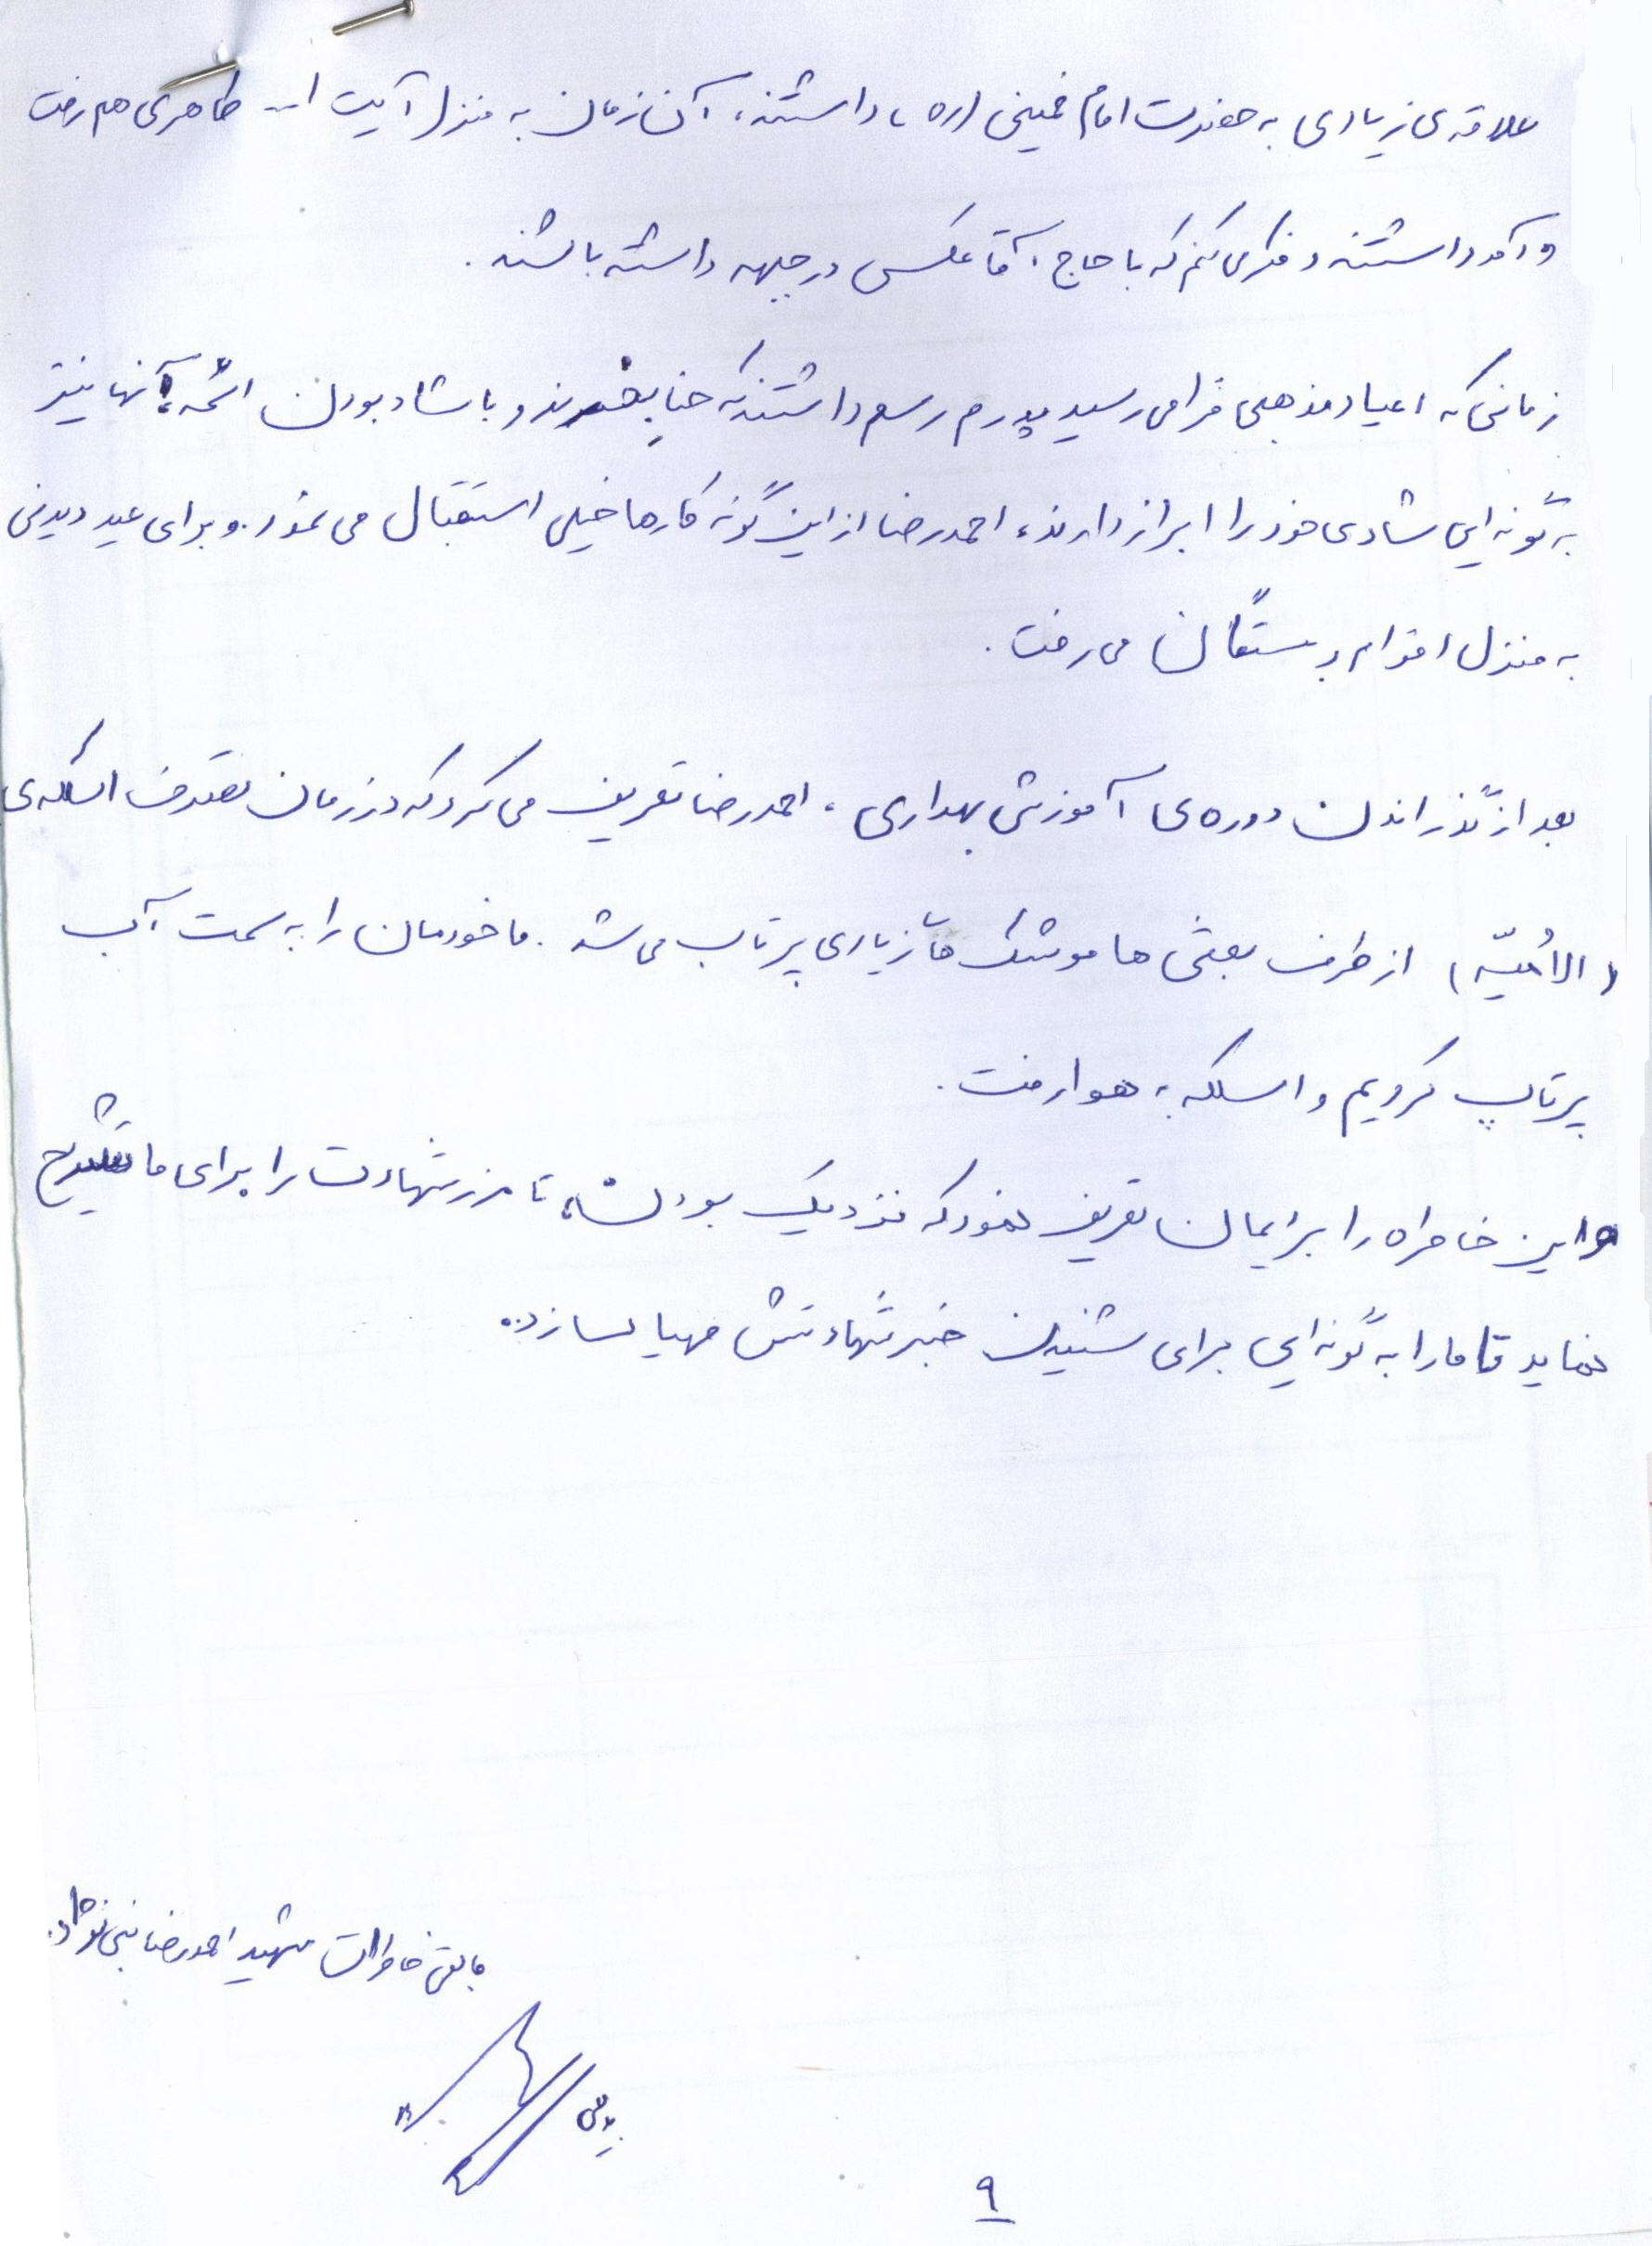 علاقه‌ی زیادی به حضرت امام خمینی (ره) داشتند، آن زمان به منزل آیت ا... طاهری هم رفت
و آمد داشتند و فکر می کنم که با حاج آقا عکسی در جبهه داشته باشند.
زمانی که اعیاد مذهبی فرا می رسید پدرم رسم داشتند که حنا بخرند و با شاد بودن ائمه، آنها نیز
به گونه ایی شادی خود را ابراز دارند، احمدرضا از این گونه کارها خیلی استقبال می نمود. و برای عید دیدنی
به منزل اقوام و بستگان می رفت.
بعد از گذراندن دوره‌ی آموزش بهداری، احمدرضا تعریف می کرد که در زمان تصرف اسکله‌ی
(الامیّه) از طرف بعثی ها موشک های زیادی پرتاب می شد. ما خودمان را به سمت آب
پرتاپ کردیم و اسکله به هوا رفت.
و این خاطره را برایمان تعریف نمود که نزدیک بودنش تا مرز شهادت را برای ما تشریح
نماید تا ما را به گونه ایی برای شنیدن خبر شهادتش مهیا سازد.
مابقی خاطرات شهید احمدرضا نبی نژاد.
۹